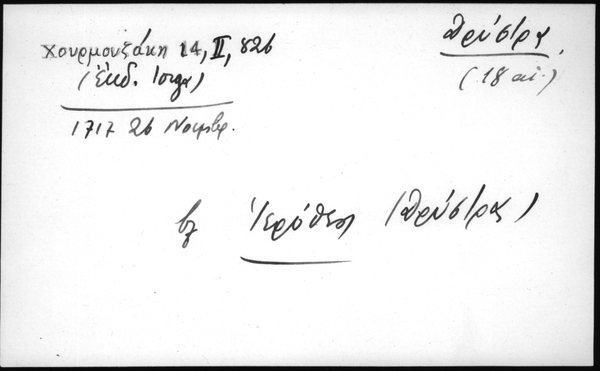 Χουρμουζάκη 14, II, 826
(ἐκδ. Ιοργα)
1717 26 Νοεμβρ.
Δρύστρα
(18 αἰ.)
βλ Ἱερόθεος (Δρύστρας)